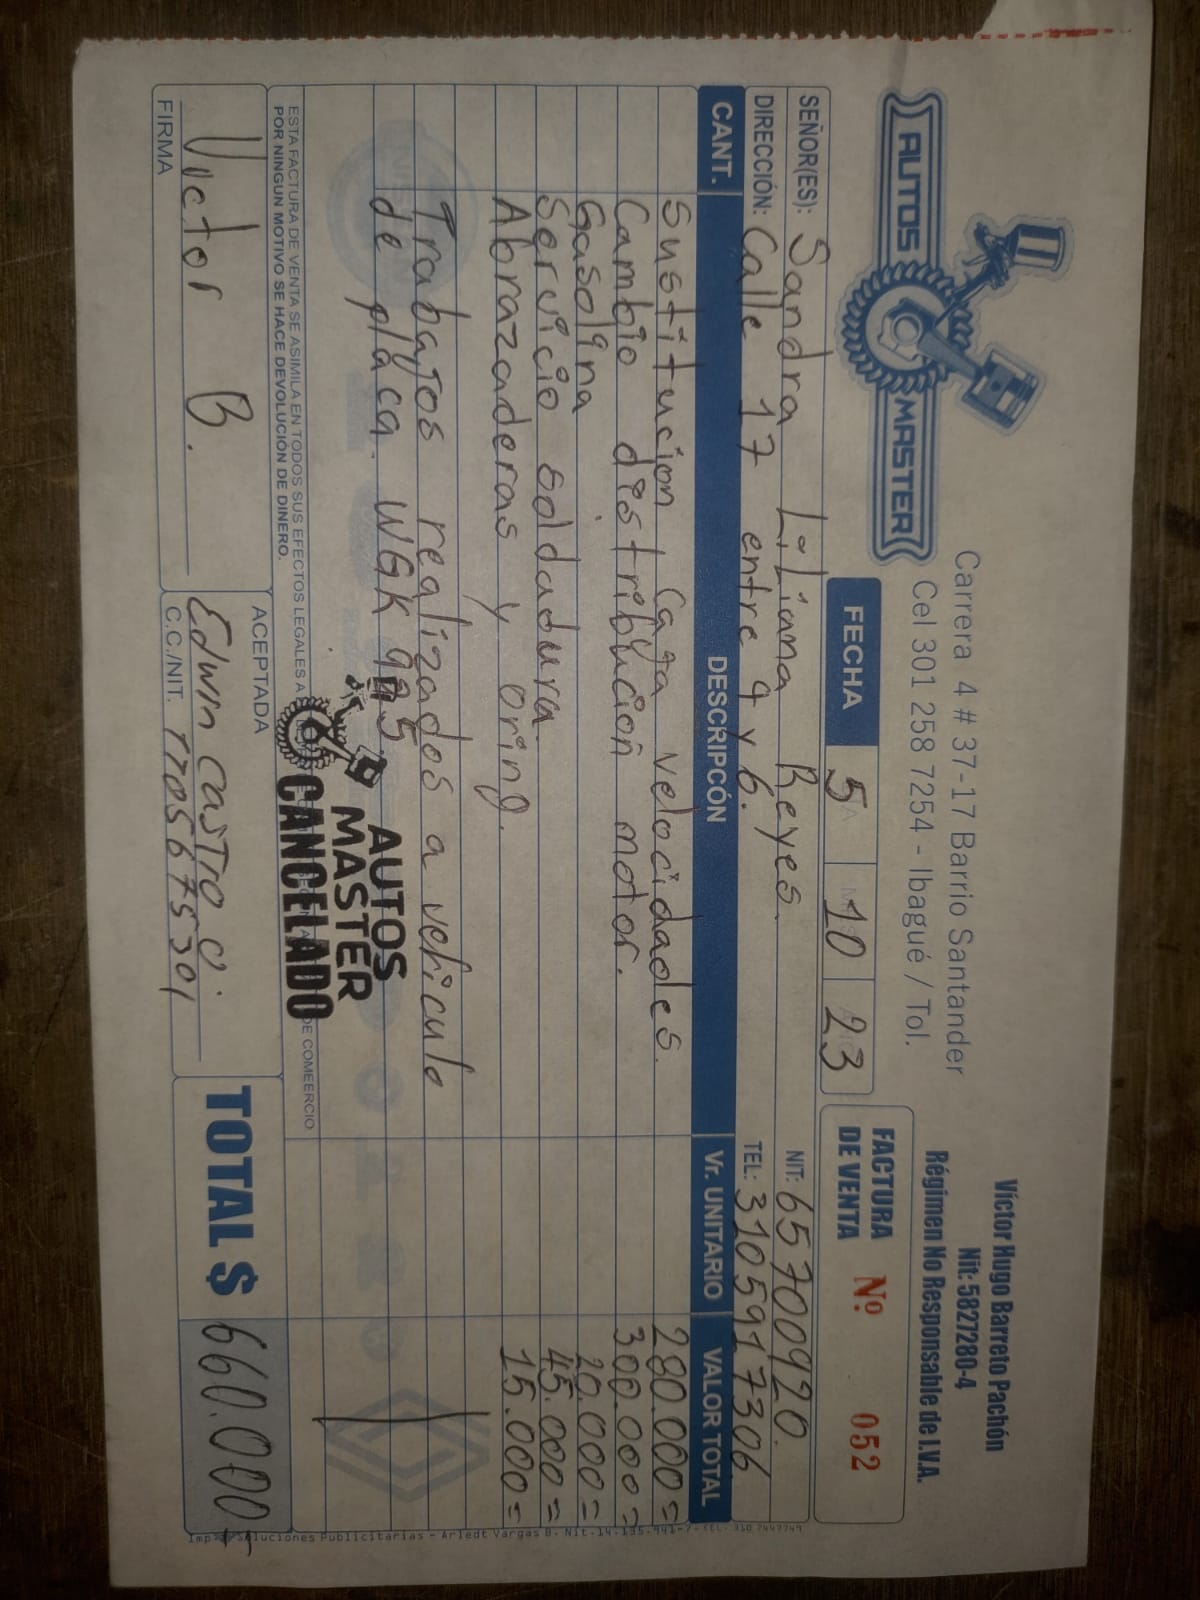 AUTOS MASTER
Carrera 4 # 37-17 Barrio Santander
Cel 301 258 7254 - Ibagué / Tol.
Víctor Hugo Barreto Pachón
Nit: 5827280-4
Régimen No Responsable de I.V.A.
FECHA 5 10 23
FACTURA DE VENTA Nº 052
SEÑOR(ES): Sandra Liliana Reyes. NIT: 65700920.
DIRECCIÓN: Calle 17 entre 4 y 6. TEL: 3105917306
CANT. DESCRIPCÓN Vr. UNITARIO VALOR TOTAL
Sustitucion Caja velocidades. 280.000=
Cambio distribución motor. 300.000=
Gasolina 20.000=
Servicio soldadura. 45.000=
Abrazaderas y oring. 15.000=
Trabajos realizados a vehiculo
de placa. WGK 995
AUTOS
MASTER
CANCELADO
ESTA FACTURA DE VENTA SE ASIMILA EN TODOS SUS EFECTOS LEGALES A DE COMEERCIO
POR NINGUN MOTIVO SE HACE DEVOLUCIÓN DE DINERO.
Victor B.
FIRMA
ACEPTADA
Edwin Castro C.
C.C./NIT. 1705675301
TOTAL $ 660.000
Soluciones Publicitarias - Arledt Vargas B. Nit. 14.135.941-7 - CEL. 310 7447749